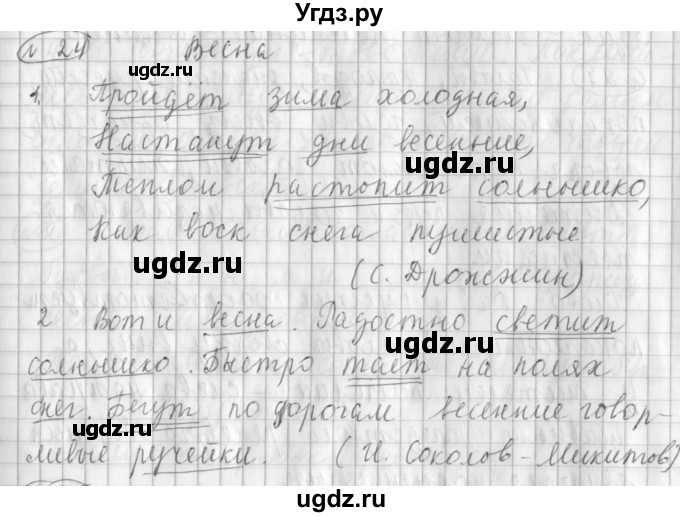 Угдз.ру
№ 24 Весна
ugdz.ru
1. Пройдёт зима холодная,
Настанут дни весенние,
ugdz.ru
Теплом растопит солнышко,
Как воск снега пушистые
ugdz.ru
(С. Дрожжин)
ugdz.ru
2 Вот и весна. Радостно светит
солнышко. Быстро тает на полях
ugdz.ru
снег. Бегут по дорогам весенние говор-
ugdz.ru
ливые ручейки. (И. Соколов-Микитов)
ugdz.ru